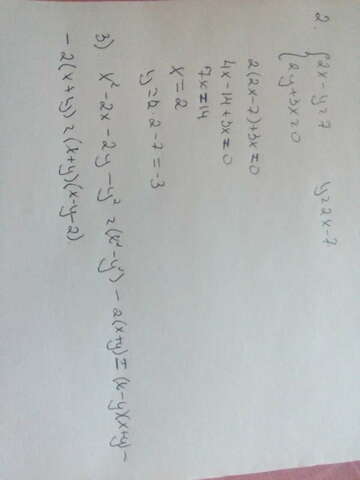 2. { 2x - y = 7   y = 2x - 7
{ 2y + 3x = 0
2(2x - 7) + 3x = 0
4x - 14 + 3x = 0
7x = 14
x = 2
y = 2·2 - 7 = -3
3) x² - 2x - 2y - y² = (x² - y²) - 2(x+y) = (x-y)(x+y) -
- 2(x+y) = (x+y)(x-y-2)